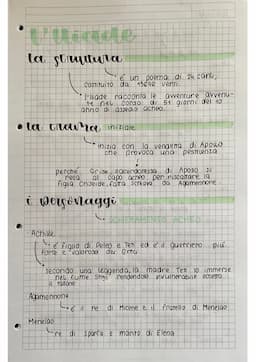 L'Iliade
la struttura
è un poema di 24 canti,
costituito da 15696 versi.
l'Iliade racconta le avventure avvenu-
te nel corso di 51 giorni del 10
anno di assedio acheo.
la trama iniziale
inizia con la vendetta di Apollo
che provoca una pestilenza
perché Crise, sacerdotessa di Apollo si
reca al capo acheo per riscattare la
figlia Criseide, fatta schiava da Agamennone.
i personaggi
SCHIERAMENTO ACHEO
Achille
è figlio di Peleo e Teti ed è il guerriero più
forte e valoroso dei Greci
secondo una leggenda, la madre Teti lo immerse
nel fiume Stige rendendolo invulnerabile eccetto
il tallone
Agamennone
è il re di Micene e il fratello di Menelao
Menelao
re di Sparta e marito di Elena